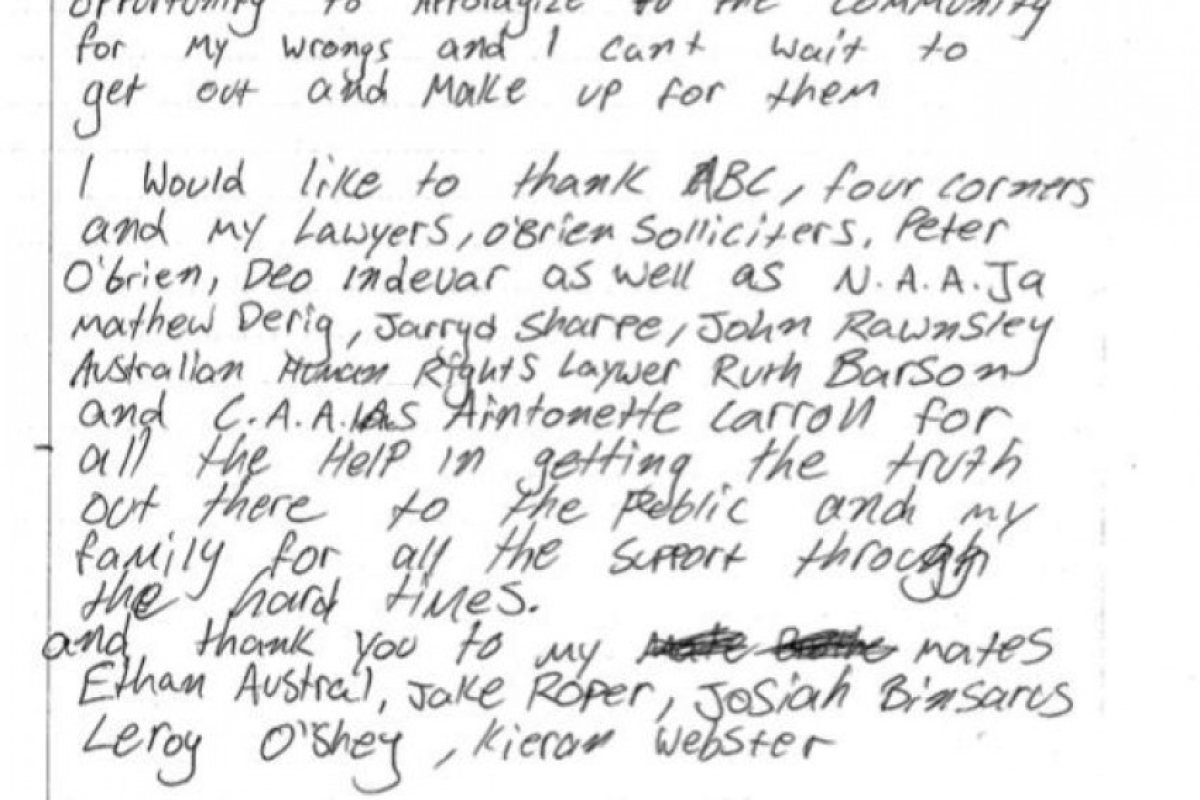 opportunity to Appologize to the community
for my wrongs and I cant wait to
get out and Make up for them
I Would like to thank ABC, four corners
and my Lawyers, O'Brien Solliciters, Peter
O'brien, Deo Indevar as well as N.A.A.Ja
Mathew Derig, Jarryd Sharpe, John Rawnsley
Australian Human Rights Laywer Ruth Barson
and C.A.A.LAS Aintonette Carroll for
all the Help in getting the truth
out there to the Peblic and my
family for all the Support through
the hard times.
and thank you to my mates
Ethan Austral, Jake Roper, Josiah Binsarus
Leroy O'Shey, Kieran Webster